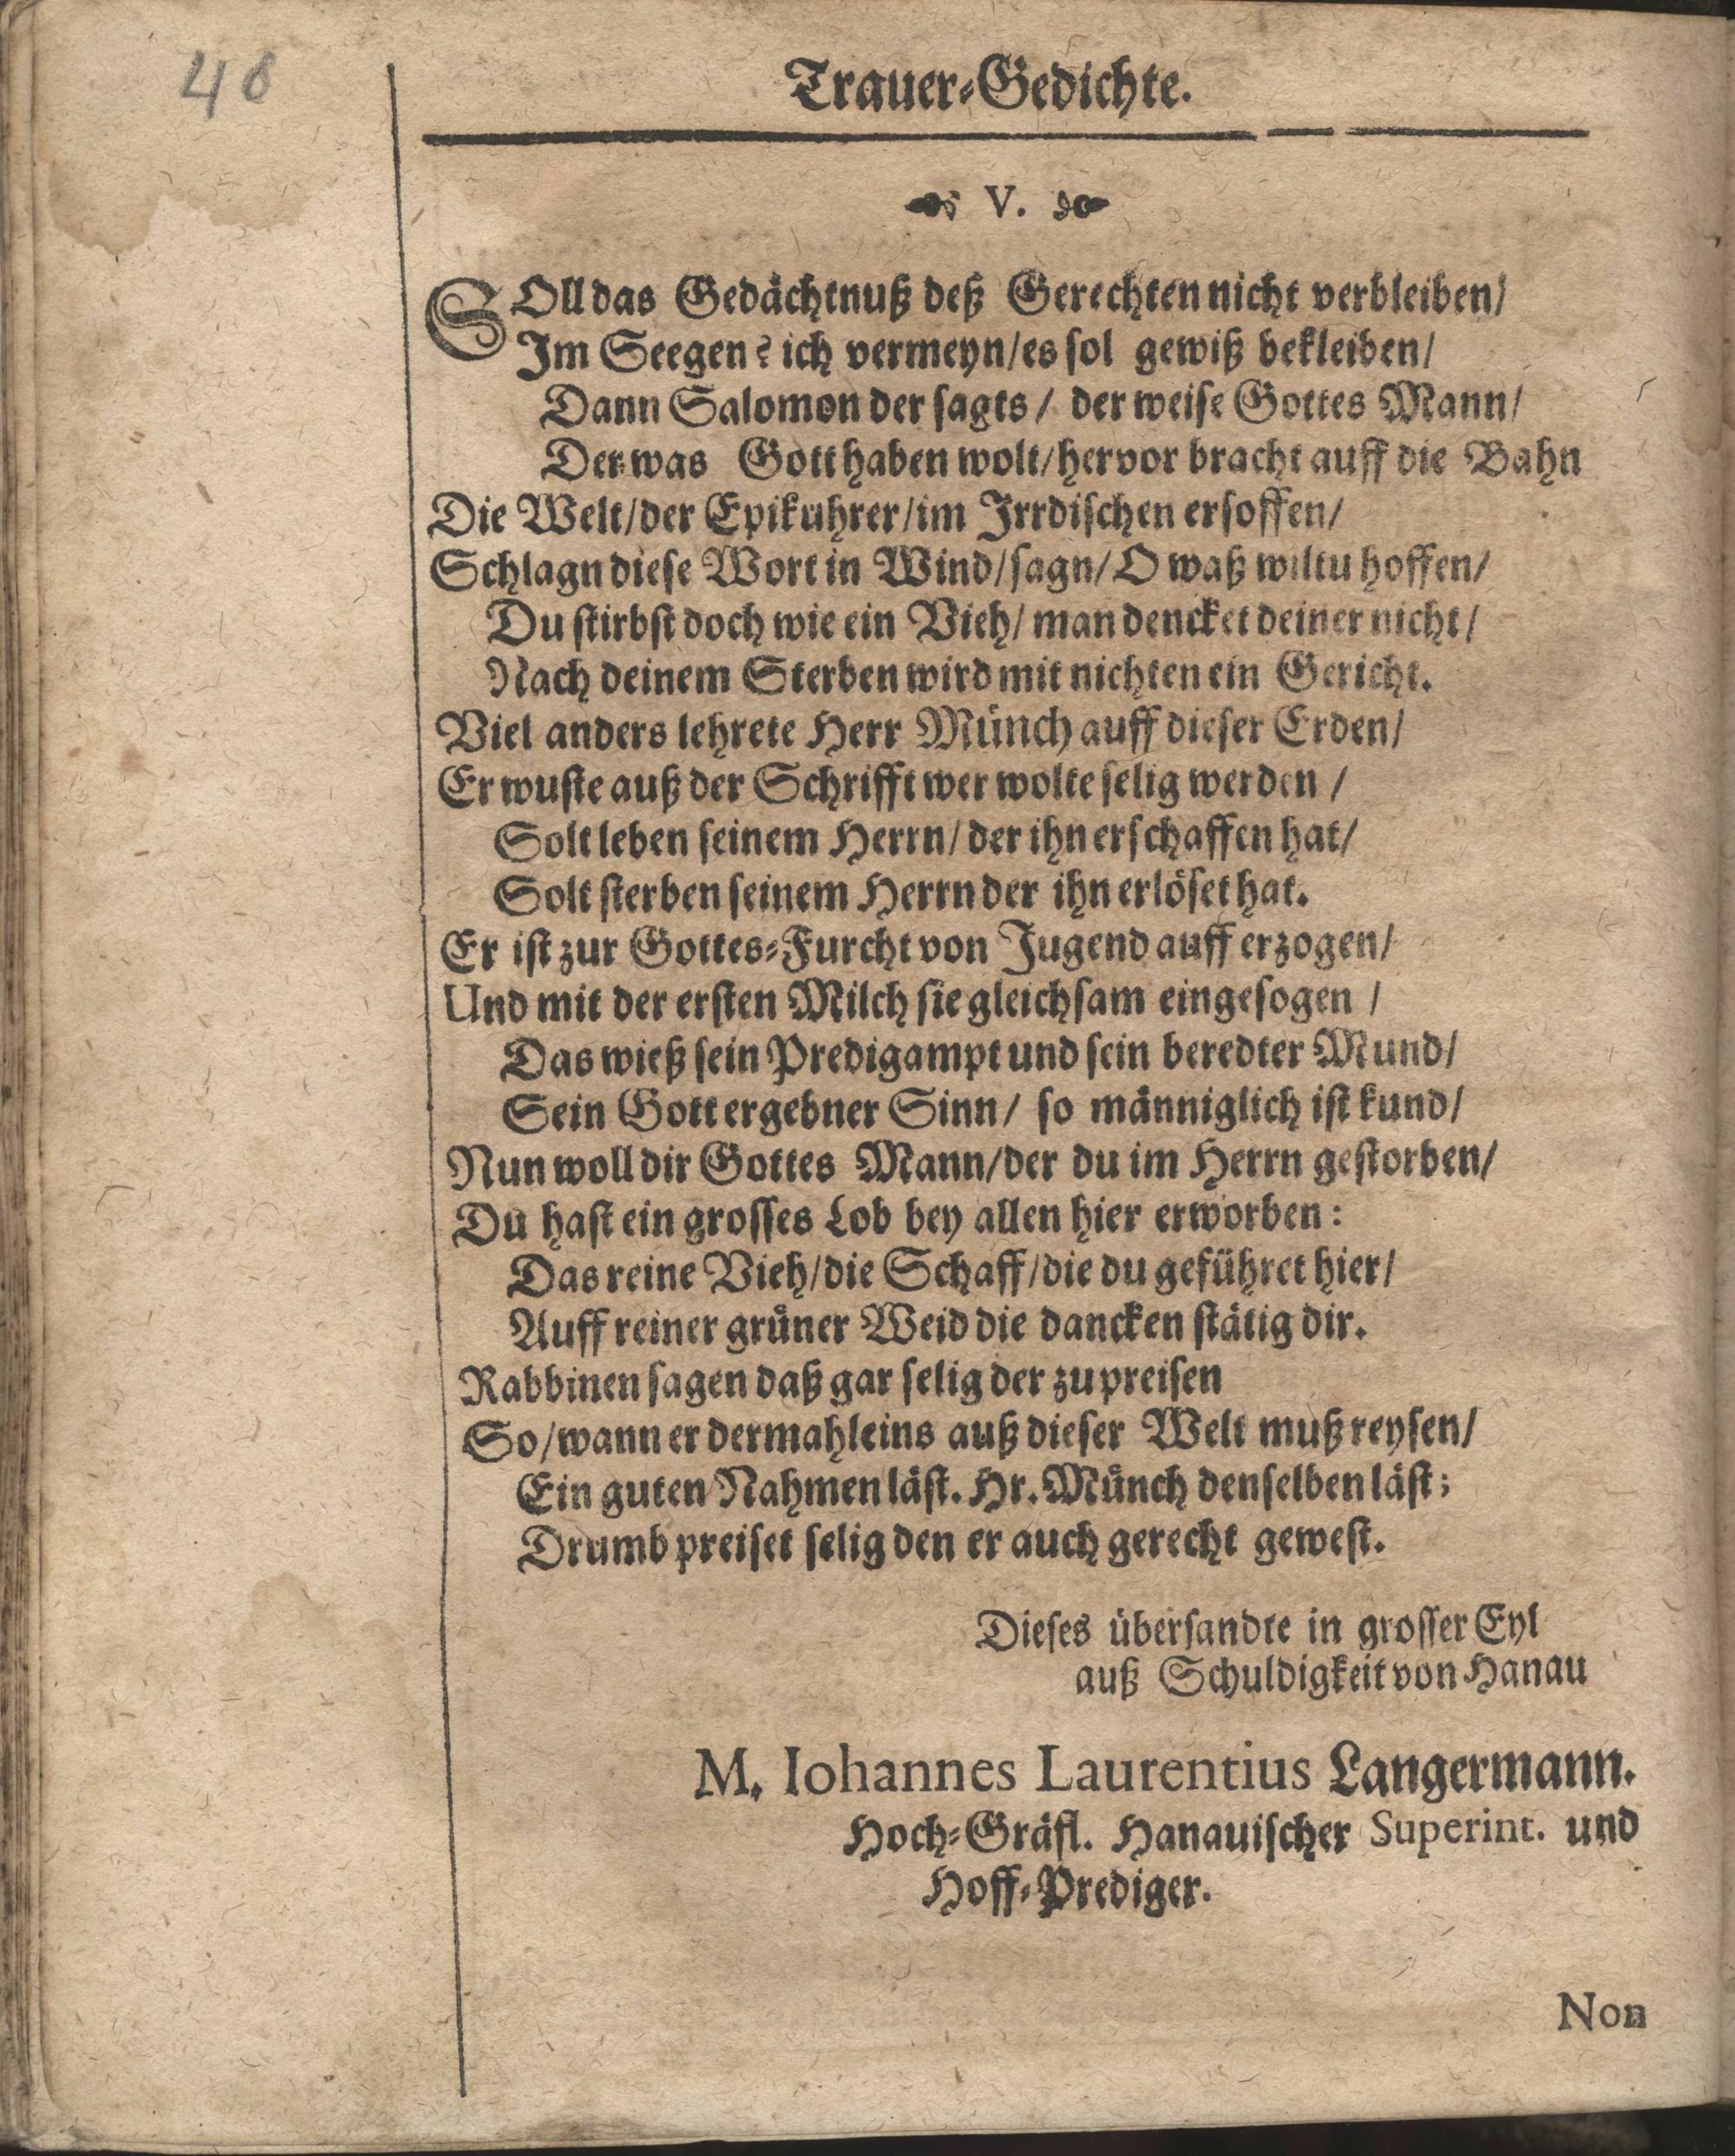 48
Trauer-Gedichte.
V.
SOll das Gedächtnuß deß Gerechten nicht verbleiben/
Im Seegen? ich vermeyn/es sol gewiß bekleiben/
Dann Salomon der sagts/ der weise Gottes Mann/
Der was Gott haben wolt/hervor bracht auff die Bahn
Die Welt/der Epikuhrer/im Irrdischen ersoffen/
Schlagn diese Wort in Wind/sagn/O waß wiltu hoffen/
Du stirbst doch wie ein Vieh/ man dencket deiner nicht/
Nach deinem Sterben wird mit nichten ein Gericht.
Viel anders lehrete Herr Münch auff dieser Erden/
Er wuste auß der Schrifft wer wolte selig werden /
Solt leben seinem Herrn/ der ihn erschaffen hat/
Solt sterben seinem Herrn der ihn erlöset hat.
Er ist zur Gottes-Furcht von Jugend auff erzogen/
Und mit der ersten Milch sie gleichsam eingesogen /
Das wieß sein Predigampt und sein beredter Mund/
Sein Gott ergebner Sinn/ so männiglich ist kund/
Nun woll dir Gottes Mann/der du im Herrn gestorben/
Du hast ein grosses Lob bey allen hier erworben:
Das reine Vieh/die Schaff/die du geführet hier/
Auff reiner grüner Weid die dancken stätig dir.
Rabbinen sagen daß gar selig der zu preisen
So/wann er dermahleins auß dieser Welt muß reysen/
Ein guten Nahmen läst. Hr. Münch denselben läst;
Drumb preiset selig den er auch gerecht gewest.
Dieses übersandte in grosser Eyl
auß Schuldigkeit von Hanau
M. Iohannes Laurentius Langermann.
Hoch-Gräfl. Hanauischer Superint. und
Hoff-Prediger.
Non